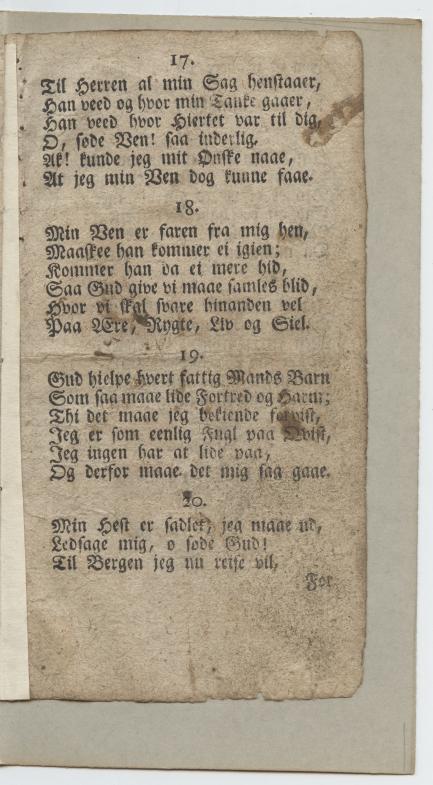 17.
Til Herren al min Sag henstaaer,
Han veed og hvor min Tanke gaaer,
Han veed hvor Hiertet var til dig,
O, søde Ven! saa inderlig.
Ak! kunde jeg mit Ønske naae,
At jeg min Ven dog kunne faae.
18.
Min Ven er faren fra mig hen,
Maaskee han kommer ei igien;
Kommer han da ei mere hid,
Saa Gud give vi maae samles blid,
Hvor vi skal svare hinanden vel
Paa Ære, Rygte, Liv og Siel.
19.
Gud hielpe hvert fattig Mands Barn
Som saa maae lide Fortred og Harm;
Thi det maae jeg bekiende forvist,
Jeg er som eenlig Fugl paa Qvist,
Jeg ingen har at lide paa,
Og derfor maae det mig saa gaae.
20.
Min Hest er sadlet, jeg maae ud,
Ledsage mig, o søde Gud!
Til Bergen jeg nu reise vil,
For